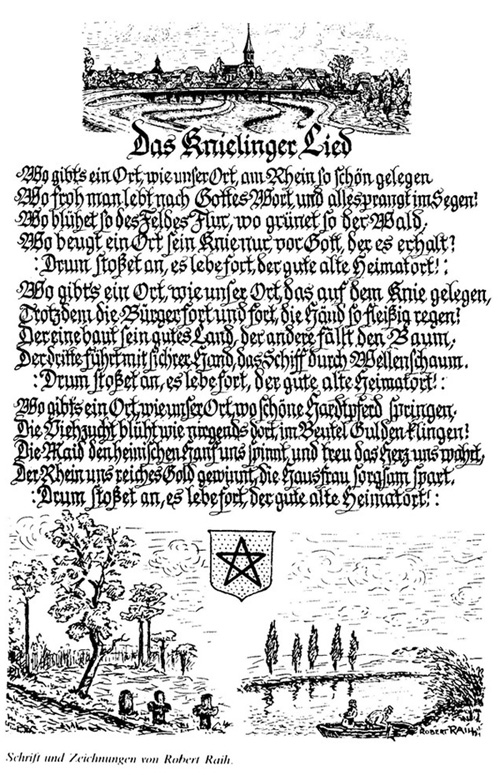 Das Knielinger Lied
Wo gibt's ein Ort, wie unser Ort, am Rhein so schön gelegen
Wo froh man lebt nach Gottes Wort, und alles prangt im Segen!
Wo blühet so des Feldes Flur, wo grünet so der Wald,
Wo beugt ein Ort sein Knie nur vor Gott, der es erhält?
: Drum stoßet an, es lebe fort, der gute alte Heimatort! :
Wo gibt's ein Ort, wie unser Ort, das auf dem Knie gelegen,
Trotzdem die Bürger fort und fort, die Händ so fleißig regen!
Der eine baut sein gutes Land, der andere fällt den Baum,
Der dritte führt mit sichrer Hand, das Schiff durch Wellenschaum.
: Drum stoßet an, es lebe fort, der gute alte Heimatort! :
Wo gibt's ein Ort, wie unser Ort, wo schöne Hardtpferd springen,
Die Viehzucht blüht wie nirgends dort, im Beutel Gulden klingen!
Die Maid den heimschen Hanf uns spinnt, und treu das Herz uns wahrt,
Der Rhein uns reiches Gold gewinnt, die Hausfrau sorgsam spart.
: Drum stoßet an, es lebe fort, der gute alte Heimatort! :
ROBERT RAIH
Schrift und Zeichnungen von Robert Raih.